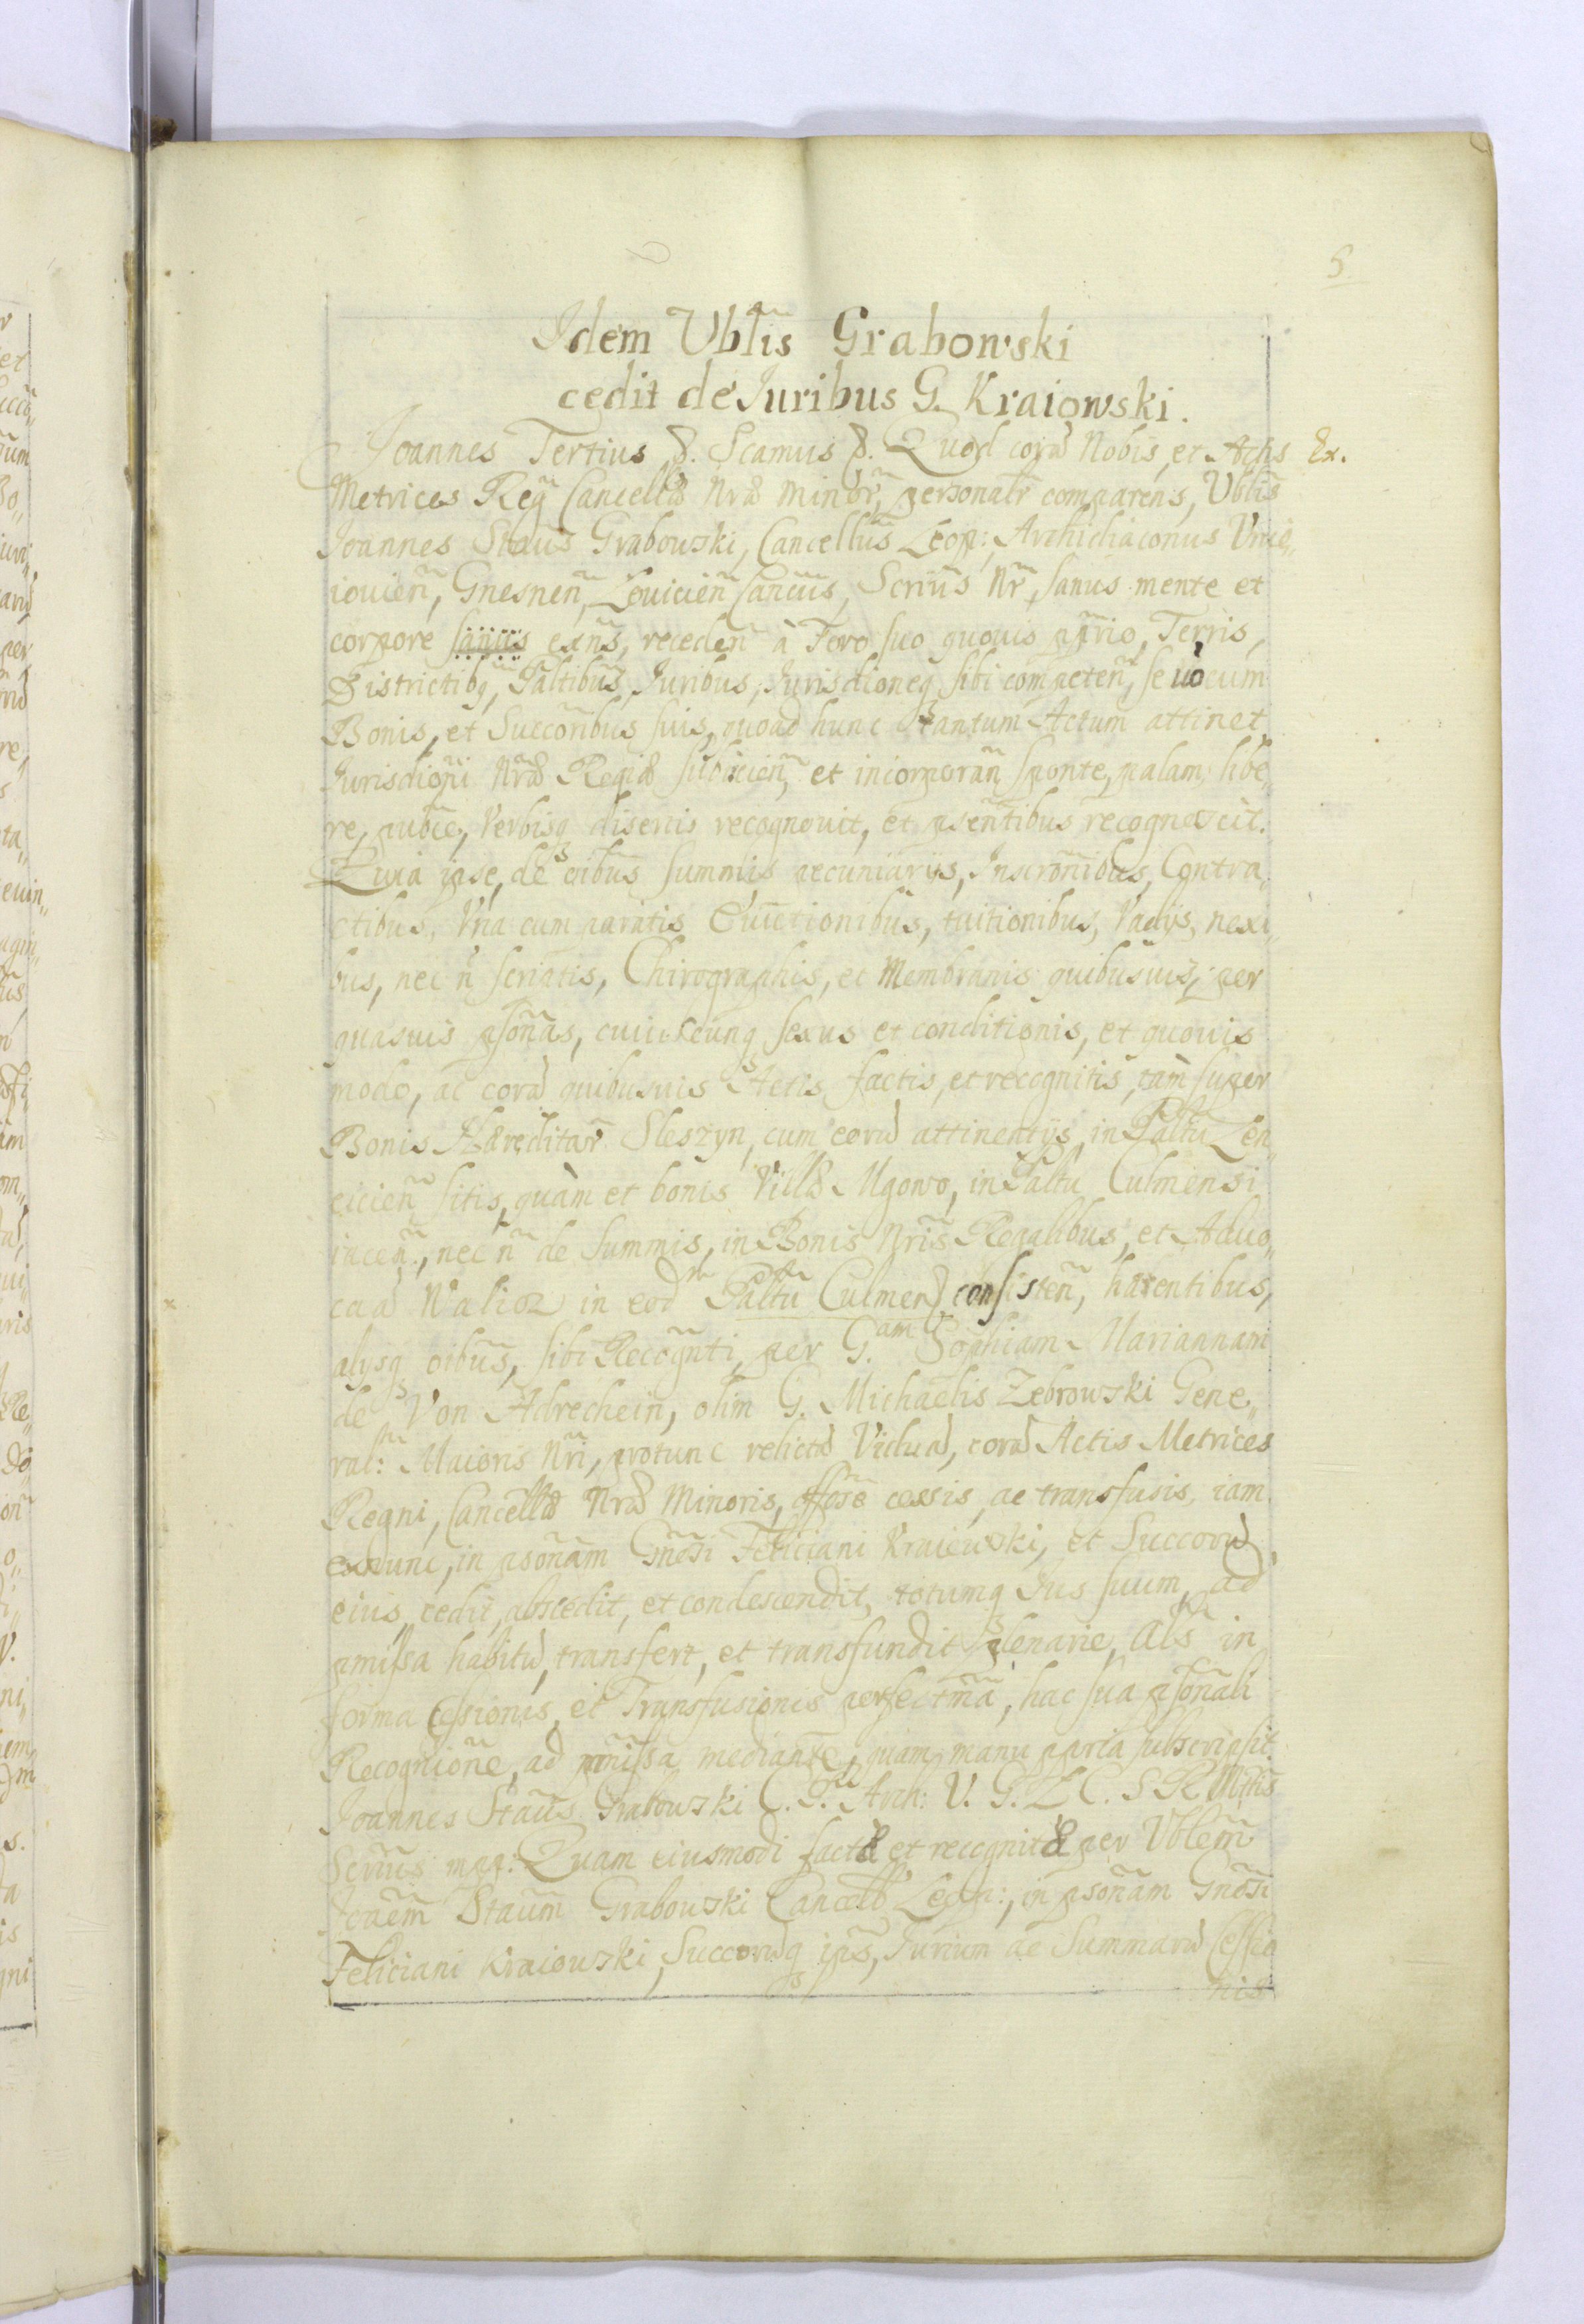 5
Idem Vblis Grabowski
cedit de Juribus G. Kraiowski.
Joannes Tertius &. Scamus &. Quod corā Nobis, et Actis Ex.
Metrices Regñ Cancellæ Nræ Minor, personalr comparens, Vblis
Joannes Staus Grabowski, Cancellus Leop: Archidiaconus Vnie„
iouien, Gnesnen, Louicien Cancus, Scrius Nr, sanus mente et
corpore sanus exns, receden à Foro suo quouis pprio, Terris,
Districtibq, Paltibus, Juribus, Jurisdioneq sibi competen, se vò cum
Bonis, et Succoribus suis, quoad hunc tantum Actum attinet
Jurisdioni Nræ Regiæ subiicien, et incorporan sponte, palam, libe„
re, publce, Verbisq disertis recognouit, et psentibus recognoscit.
Quia ipse, de oibus summis pecuniarijs, Inscronibus, Contra„
ctibus, Vna cum paratis Euictionibus, tuitionibus, Vadijs, nexi„
bus, nec n scriptis, Chirographis, et Membranis quibusuis, per
quasuis psonas, cuiuscunq sexus et conditionis, et quouis
modo, ac corā quibusuis Actis factis, et recognitis, tàm super
Bonis Hæreditar Sleszyn, cum eorū attinentijs, in Paltu Len„
cicien sitis, quàm et bonis Villæ Mgowo, in Paltu Culmensi
iacen, nec n de Summis, in Bonis Nris Regalibus, et Aduo„
caā in eod Paltu Culmen consisten, hærentibus,
alijsq oibus, sibi Recognti, per G.am Sophiam Mariannam
de Von Adrechein, olim G. Michaelis Zebrowski Gene„
ral: Maioris Nri, protunc relictā Viduā, corā Actis Metrices
Regni, Cancellæ Nræ Minoris, cessis, ac transfusis, iam
exnunc, in psonam Gnosi Feliciani Kraiewski, et Succorū
eius, cedit, abscedit, et condescendit, totumq Jus suum, ad
pmissa habitū, transfert, et transfundit plenarie, Als in
forma Cessionis, et Transfusionis perfectma, hac sua psonali
Recognione, ad pmissa mediante, quam manu ppria subscripsit.
Joannes Staus Grabowski C. L. Arch: V. G. L C. S R Mtis
Scrius mpp: Quam eiusmodi factæ et recognitæ per Vblem
Joaem Staum Grabowski Cancell Leop:, in psonam Gnosi
Feliciani Kraiowski, Succorūq ipius, Jurium ac Summarū Cessio
nis